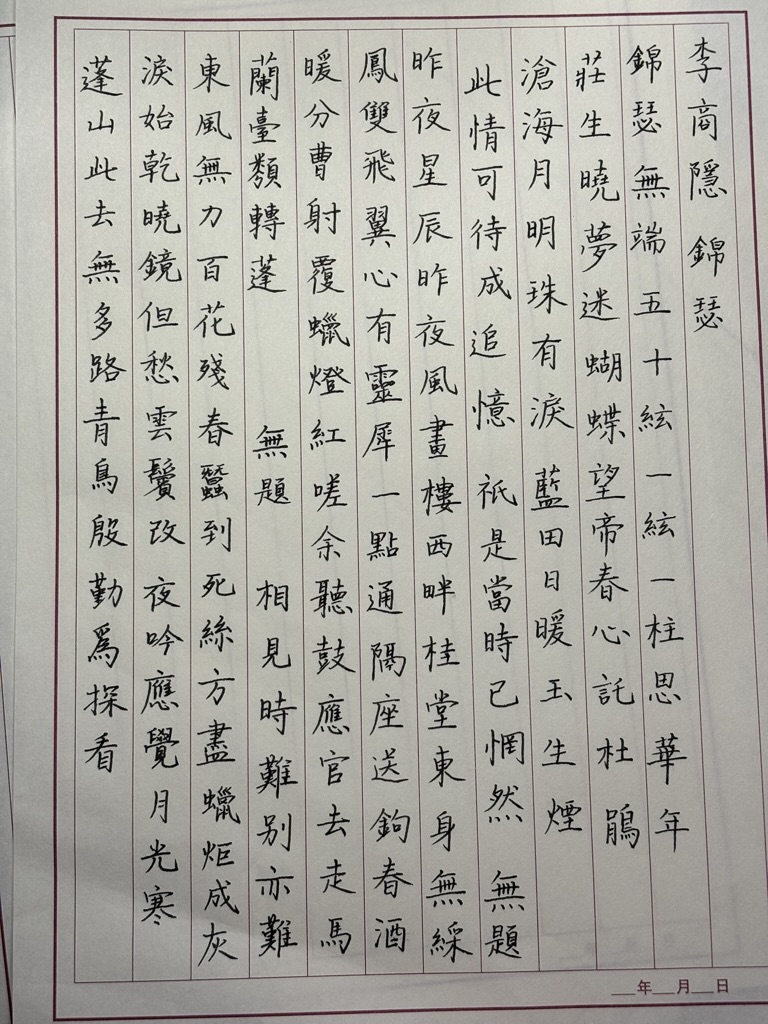 李商隱 錦瑟
錦瑟無端五十絃一絃一柱思華年
莊生曉夢迷蝴蝶望帝春心託杜鵑
滄海月明珠有淚 藍田日暖玉生煙
此情可待成追憶 祇是當時已惘然 無題
昨夜星辰昨夜風畫樓西畔桂堂東身無綵
鳳雙飛翼心有靈犀一點通隔座送鉤春酒
暖分曹射覆蠟燈紅嗟余聽鼓應官去走馬
蘭臺類轉蓬 無題 相見時難別亦難
東風無力百花殘春蠶到死絲方盡蠟炬成灰
淚始乾曉鏡但愁雲鬢改夜吟應覺月光寒
蓬山此去無多路青鳥殷勤爲探看
年 月 日